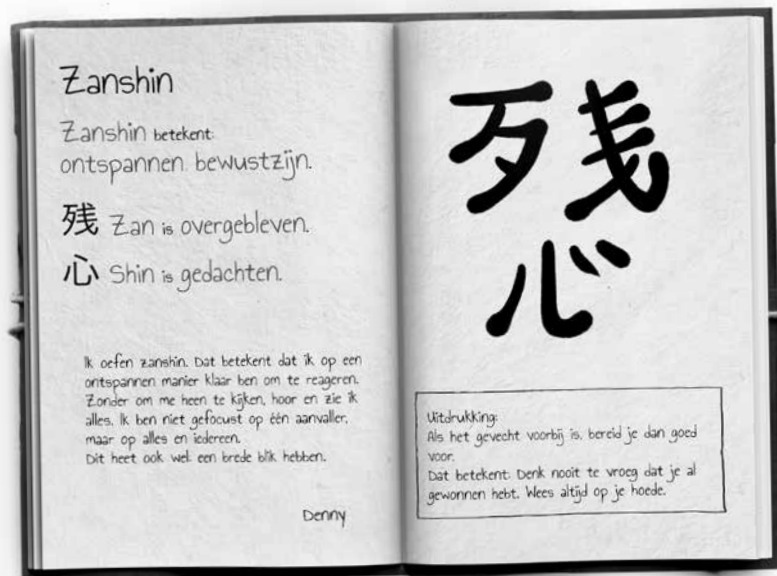 Zanshin
Zanshin betekent:
ontspannen bewustzijn.
残 Zan is overgebleven.
心 Shin is gedachten.
Ik oefen zanshin. Dat betekent dat ik op een
ontspannen manier klaar ben om te reageren.
Zonder om me heen te kijken, hoor en zie ik
alles. Ik ben niet gefocust op één aanvaller,
maar op alles en iedereen.
Dit heet ook wel: een brede blik hebben.
Denny
残
心
Uitdrukking:
Als het gevecht voorbij is, bereid je dan goed
voor.
Dat betekent: Denk nooit te vroeg dat je al
gewonnen hebt. Wees altijd op je hoede.